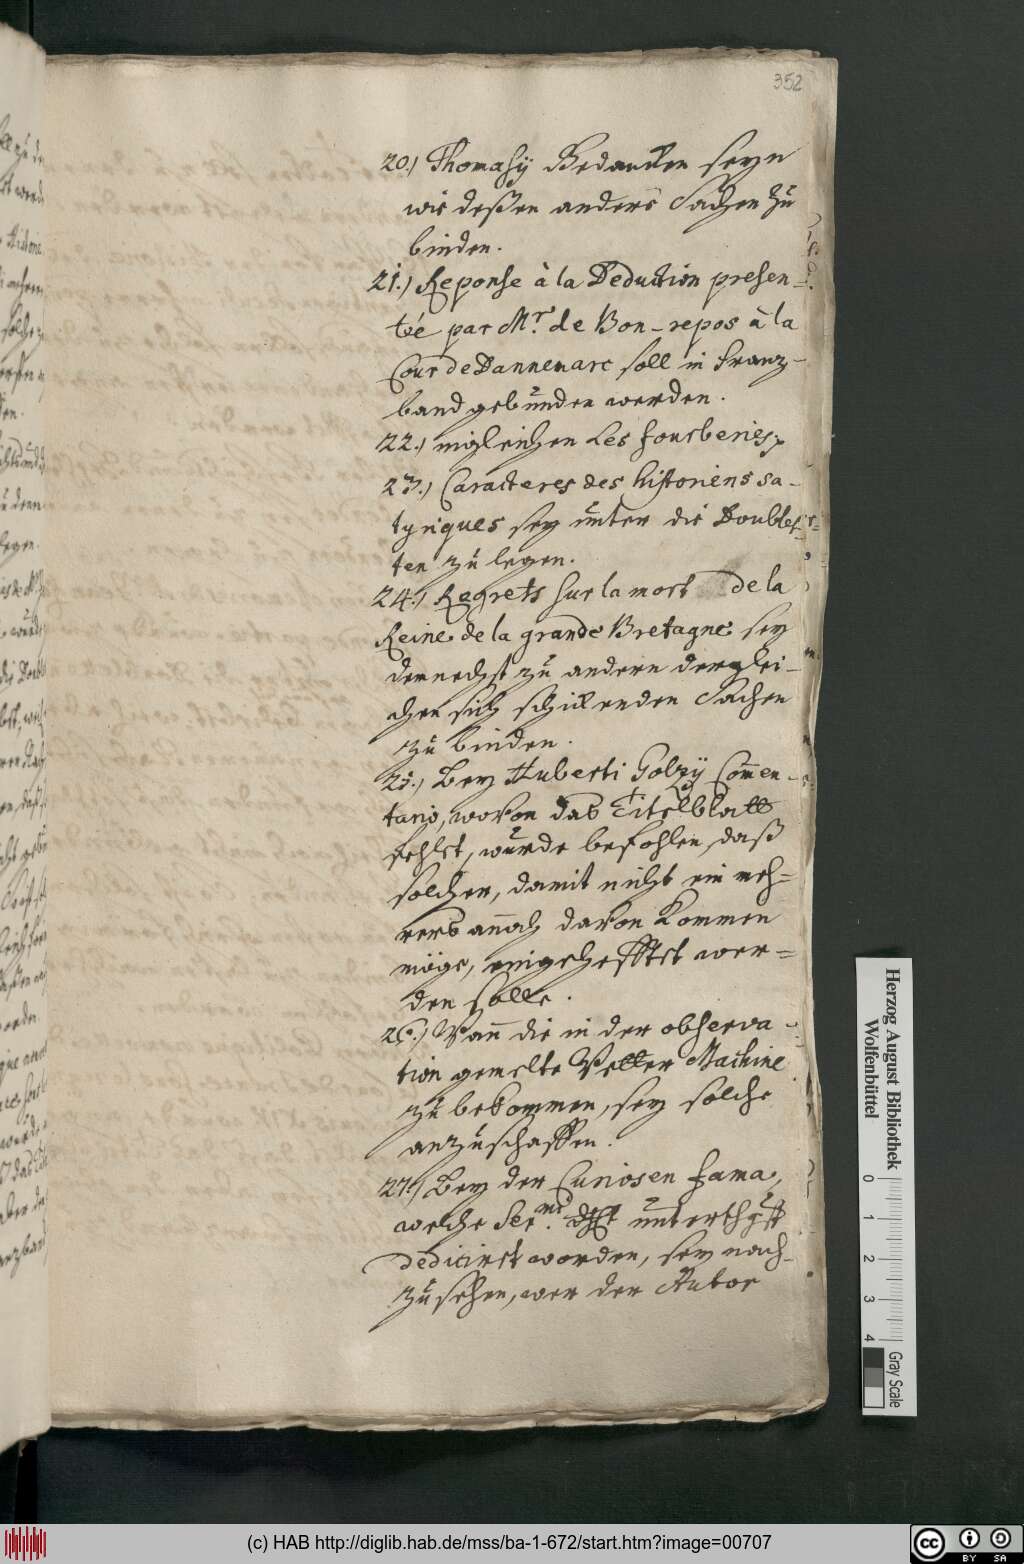 352
20.) Thomasÿ Bedancken seyn
wie deßen andere Sachen zu
binden.
21.) Reponse à la Deduction presen-
tée par Mr. de Bon-repos à la
Cour de Dannemarc soll in Franz-
band gebunden werden.
22.) ingleichen Les fourberies
23.) Caracteres des historiens sa-
tyriques sey unter die Doublet-
ten zu legen.
24.) Regrets sur la mort de la
Reine de la grande Bretagne sey
demnechst zu andern derglei-
chen sich schickenden Sachen
zu binden.
25.) Bey Huberti Golzÿ Com̃en-
tario, wovon das Titelblatt
fehlet, wurde befohlen, daß
solcher, damit nicht ein meh=
rers annoch davon kommen
möge, eingehefftet wer=
den solle.
26.) Wan̄ die in der observa-
tion gemelte Wetter Machine
zu bekommen, sey solche
anzuschaffen.
27.) Bey der Curiosen Fama,
welche Ser.mi unterthgst
dediciret worden, sey nach-
zusehen, wer der Autor
Herzog August Bibliothek
Wolfenbüttel
0 1 2 3 4
Gray Scale
(c) HAB http://diglib.hab.de/mss/ba-1-672/start.htm?image=00707
cc BY SA